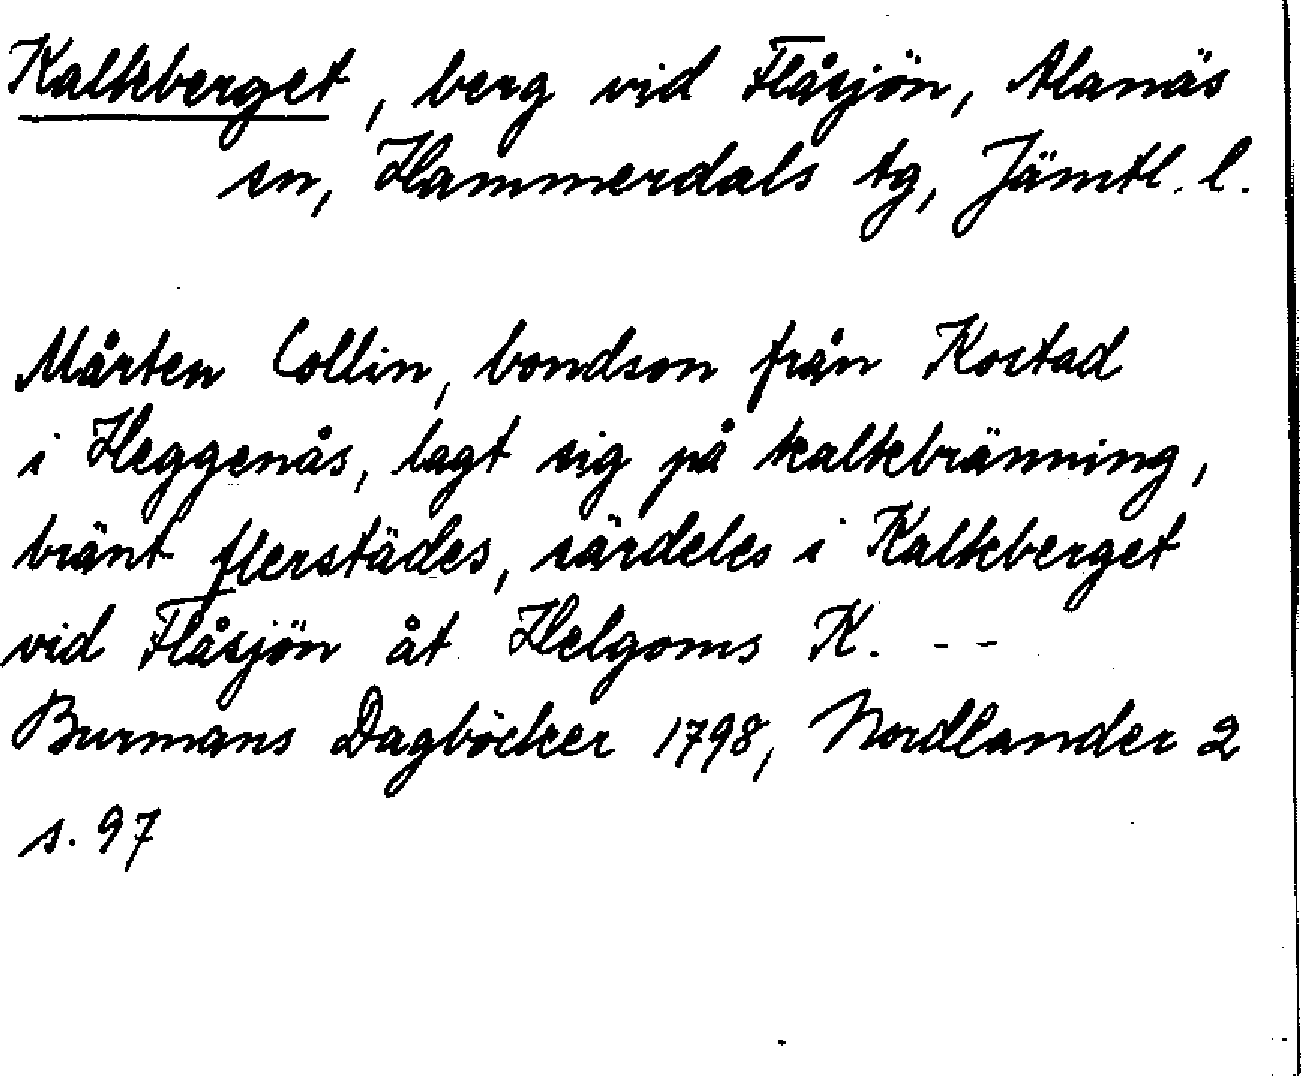 Kalkberget, berg vid Flåsjön, Alanäs
sn, Hammerdals tg, Jämtl. l.
Mårten Collin, bondson från Kostad
i Heggenås, lagt sig på kalkbränning,
bränt flerstädes, särdeles i Kalkberget
vid Flåsjön åt Helgoms K. - -
Burmans Dagböcker 1798, Nordlander 2
s. 97